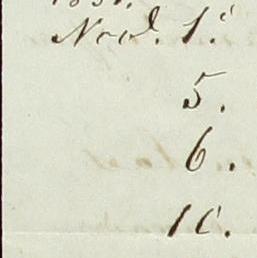 Nov. 1.
5.
6.
10.